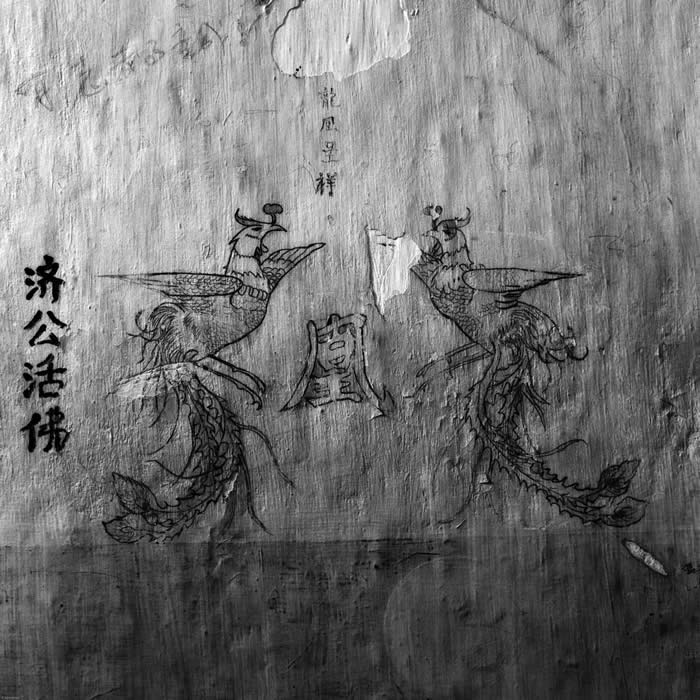 龍凤呈祥。
凰
济公活佛